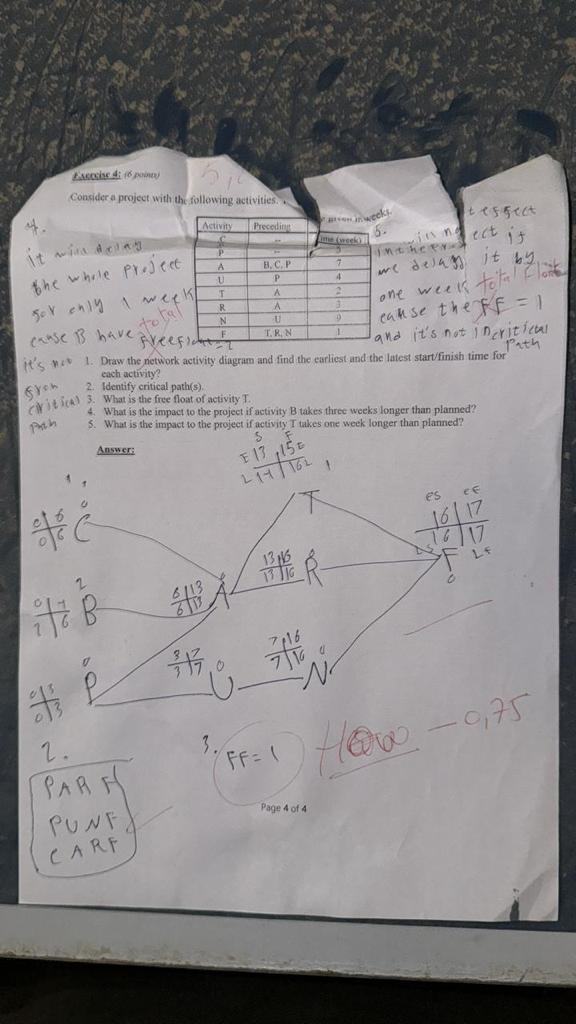 Exercise 4: (6 points)
Consider a project with the following activities.
given in weeks.
Activity Preceding (week)
C --
P --
A B, C, P 7
U P 4
T A 2
R A 3
N U 9
F T, R, N 1
4.
it will delay
the whole project
for only 1 week
cause B have total
Freefloat = 2
it's not
from
critical
path
5.
effect
we delay it by
one week total Float
cause the FF = 1
and it's not in critical
Path
1. Draw the network activity diagram and find the earliest and the latest start/finish time for
each activity?
2. Identify critical path(s).
3. What is the free float of activity T.
4. What is the impact to the project if activity B takes three weeks longer than planned?
5. What is the impact to the project if activity T takes one week longer than planned?
Answer:
S F
E 13 15 E
L 14 16 L 1
T
1.
0 6 0
0 6 C
ES EF
16 17
16 17
LS LF
F
0
13 16 0
13 16 R
2
B
6 13 0
6 13 A
0 3 0
0 3 P
3 7 0
3 7 U
7 16 0
7 16 N
2.
PARF
PUNF
CARF
3.
FF = 1
How – 0,75
Page 4 of 4